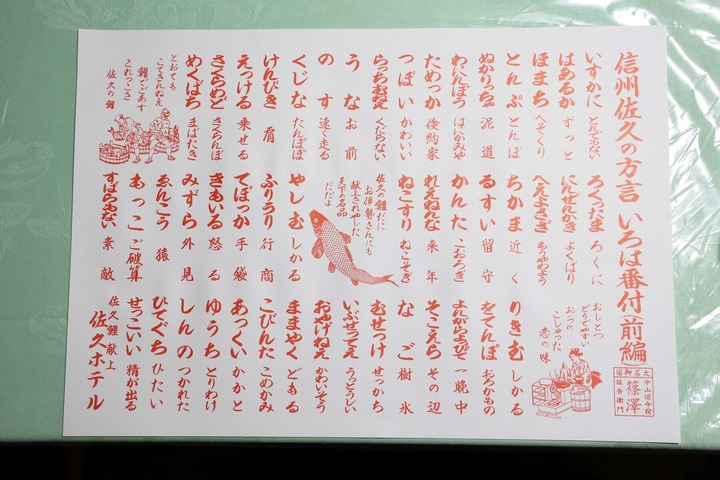 信州佐久の方言 いろは番付 前編
いすかに とんでもない
はあるか ずっと
ほまち へそくり
とんぷ とんぼ
ぬかりっちゃ 泥道
わにんぼう はにかみや
ためっか 倹約家
つっぽい かわいい
らっちもねえ くだらない
うな お前
のす 速く走る
くじな たんぽぽ
けんびき 肩
えっける 乗せる
さくらめど さくらんぼ
めくばち まばたき
とおても
こてさんねえ
鯉でごあす
これっこさ
佐久の鯉
ろくったま ろくに
にんぜんひき よくばり
へえよさぎ もうやめよう
ちかま 近く
るすい 留守
かんた こおろぎ
れえねんな 来年
ねこすり ねこそぎ
佐久の鯉だに
お伊勢さんにも
献上されやした
まぼの名品
だだよ
やしむ しかる
ふりうり 行商
てぼっか 手袋
きもいる 怒る
みずら 外見
ゑんこう 猿
あっこ ご破算
すばらもない 素敵
おしとつ
どうでやすい
おつな
こじゃった
恋の味
大名御宿
中山道今宿
篠澤
佐吾衛門
りきむ しかる
をてんぽ おろかもの
よんがらよっぴて 一晩中
そこえら その辺
なご 樹氷
むせっけ せっかち
いぶせってえ うっとうしい
おやげねえ かわいそう
ままやく どもる
こびんた こめかみ
あっくい かかと
ゆうっち とりわけ
しんの つかれた
ひてぐち ひたい
せっこいい 精が出る
佐久鯉献上
佐久ホテル